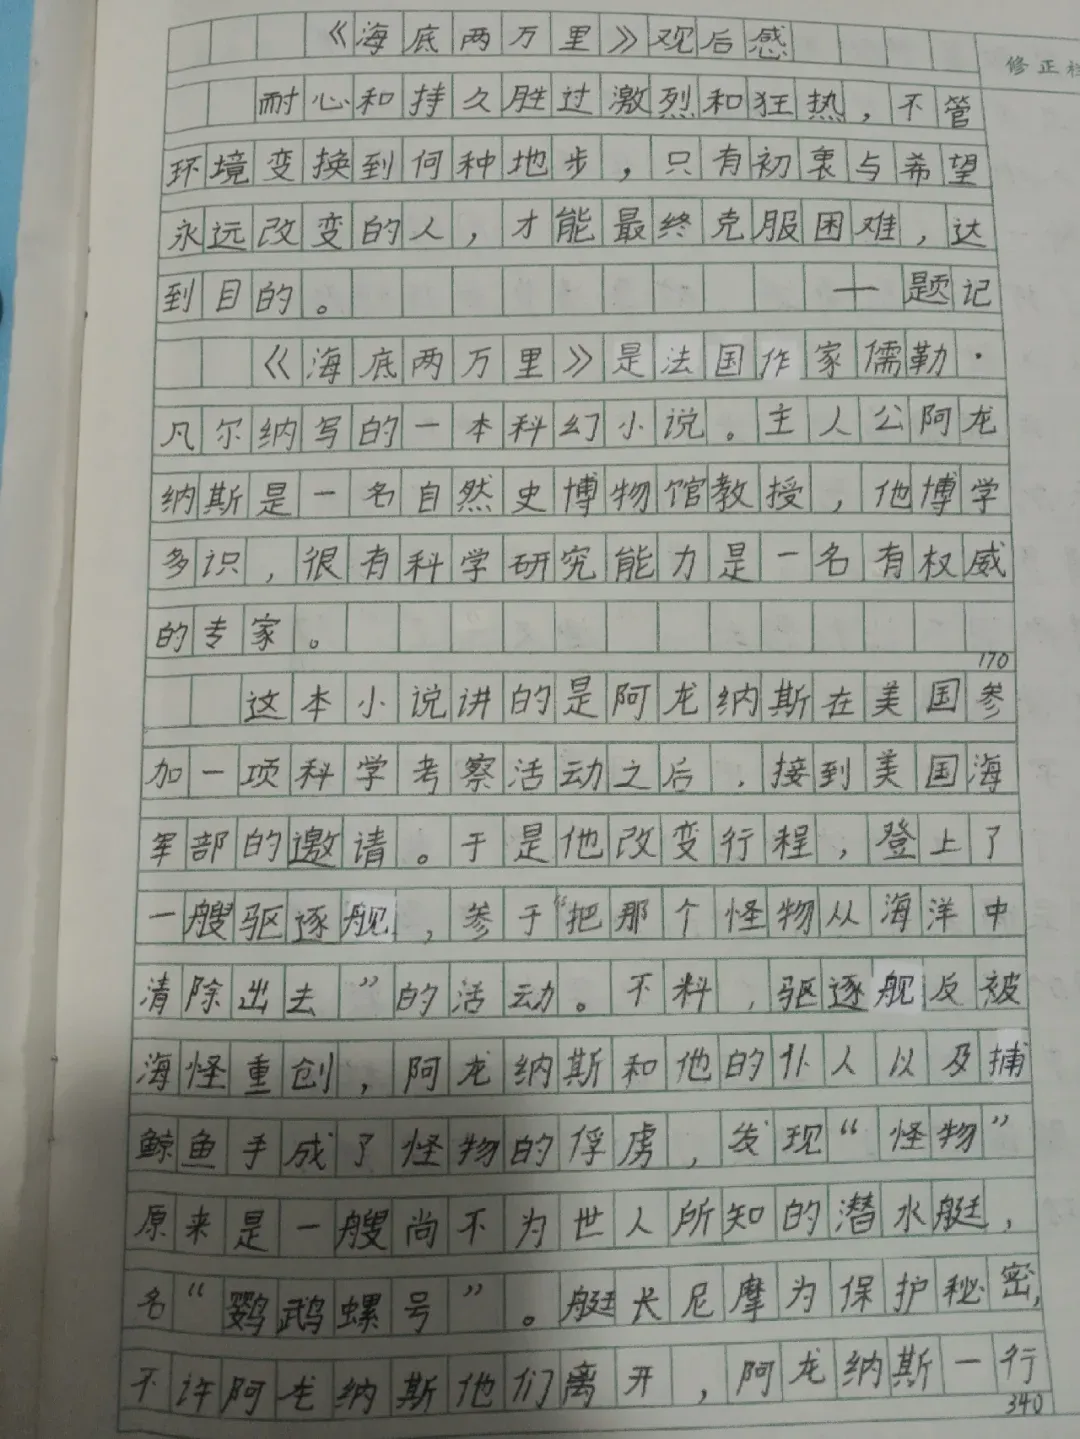 《海底两万里》观后感
修正栏
耐心和持久胜过激烈和狂热，不管
环境变换到何种地步，只有初衷与希望
永远改变的人，才能最终克服困难，达
到目的。 —题记
《海底两万里》是法国作家儒勒·
凡尔纳写的一本科幻小说。主人公阿龙
纳斯是一名自然史博物馆教授，他博学
多识，很有科学研究能力是一名有权威
的专家。
170
这本小说讲的是阿龙纳斯在美国参
加一项科学考察活动之后，接到美国海
军部的邀请。于是他改变行程，登上了
一艘驱逐舰，参于“把那个怪物从海洋中
清除出去”的活动。不料，驱逐舰反被
海怪重创，阿龙纳斯和他的仆人以及捕
鲸鱼手成了怪物的俘虏，发现“怪物”
原来是一艘尚不为世人所知的潜水艇，
名“鹦鹉螺号”。艇长尼摩为保护秘密，
不许阿龙纳斯他们离开，阿龙纳斯一行
340